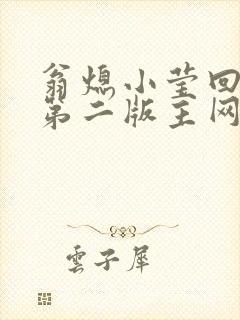 翁熄小莹回
第二版主网
雲子犀